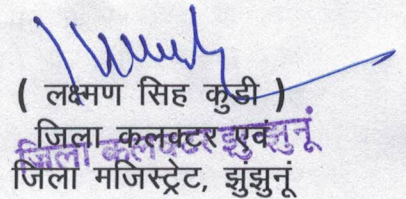 ( लक्ष्मण सिह कुडी )
जिला कलक्टर एवं
जिला कलक्टर झुन्झुनूं
जिला मजिस्ट्रेट, झुंझुनूं